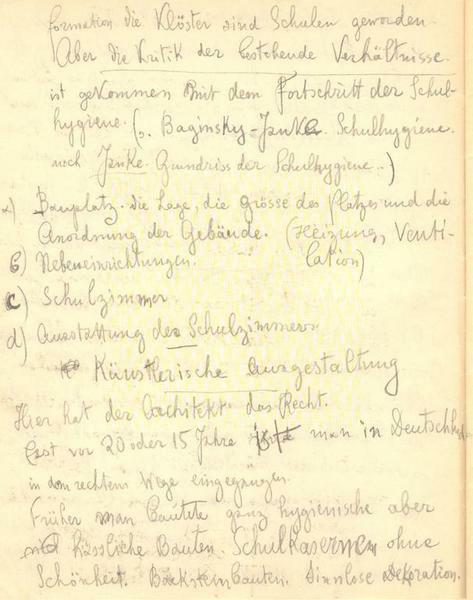 formation die Klöster sind Schulen geworden.
Aber die Kritik der bestehende Verhältnisse
ist gekommen mit dem Fortschritt der Schul-
hygiene. (s. Baginsky-Janke. Schulhygiene.
noch Janke. Grundriss der Schulhygiene..)
a) Bauplatz. die Lage, die Grösse des Platzes und die
Anordnung der Gebäude. (Heizung, Venti-
b) Nebeneinrichtungen. lation)
c) Schulzimmer
d) Ausstattung des Schulzimmers.
Künstlerische Ausgestaltung
Hier hat der Architekt das Recht.
Erst vor 20 oder 15 Jahre ist man in Deutschld
in dem rechtem Wege eingegangen.
Früher man bautete ganz hygienische aber
hässliche Bauten. Schulkasernen ohne
Schönheit. Backsteinbauten. Sinnlose Dekoration.